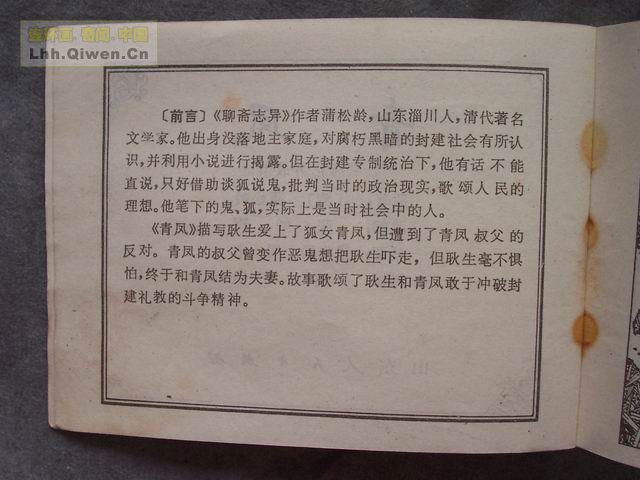 连环画.奇闻.中国
Lhh.Qiwen.Cn
〔前言〕《聊斋志异》作者蒲松龄，山东淄川人，清代著名
文学家。他出身没落地主家庭，对腐朽黑暗的封建社会有所认
识，并利用小说进行揭露。但在封建专制统治下，他有话不能
直说，只好借助谈狐说鬼，批判当时的政治现实，歌颂人民的
理想。他笔下的鬼、狐，实际上是当时社会中的人。
《青凤》描写耿生爱上了狐女青凤，但遭到了青凤叔父的
反对。青凤的叔父曾变作恶鬼想把耿生吓走，但耿生毫不惧
怕，终于和青凤结为夫妻。故事歌颂了耿生和青凤敢于冲破封
建礼教的斗争精神。